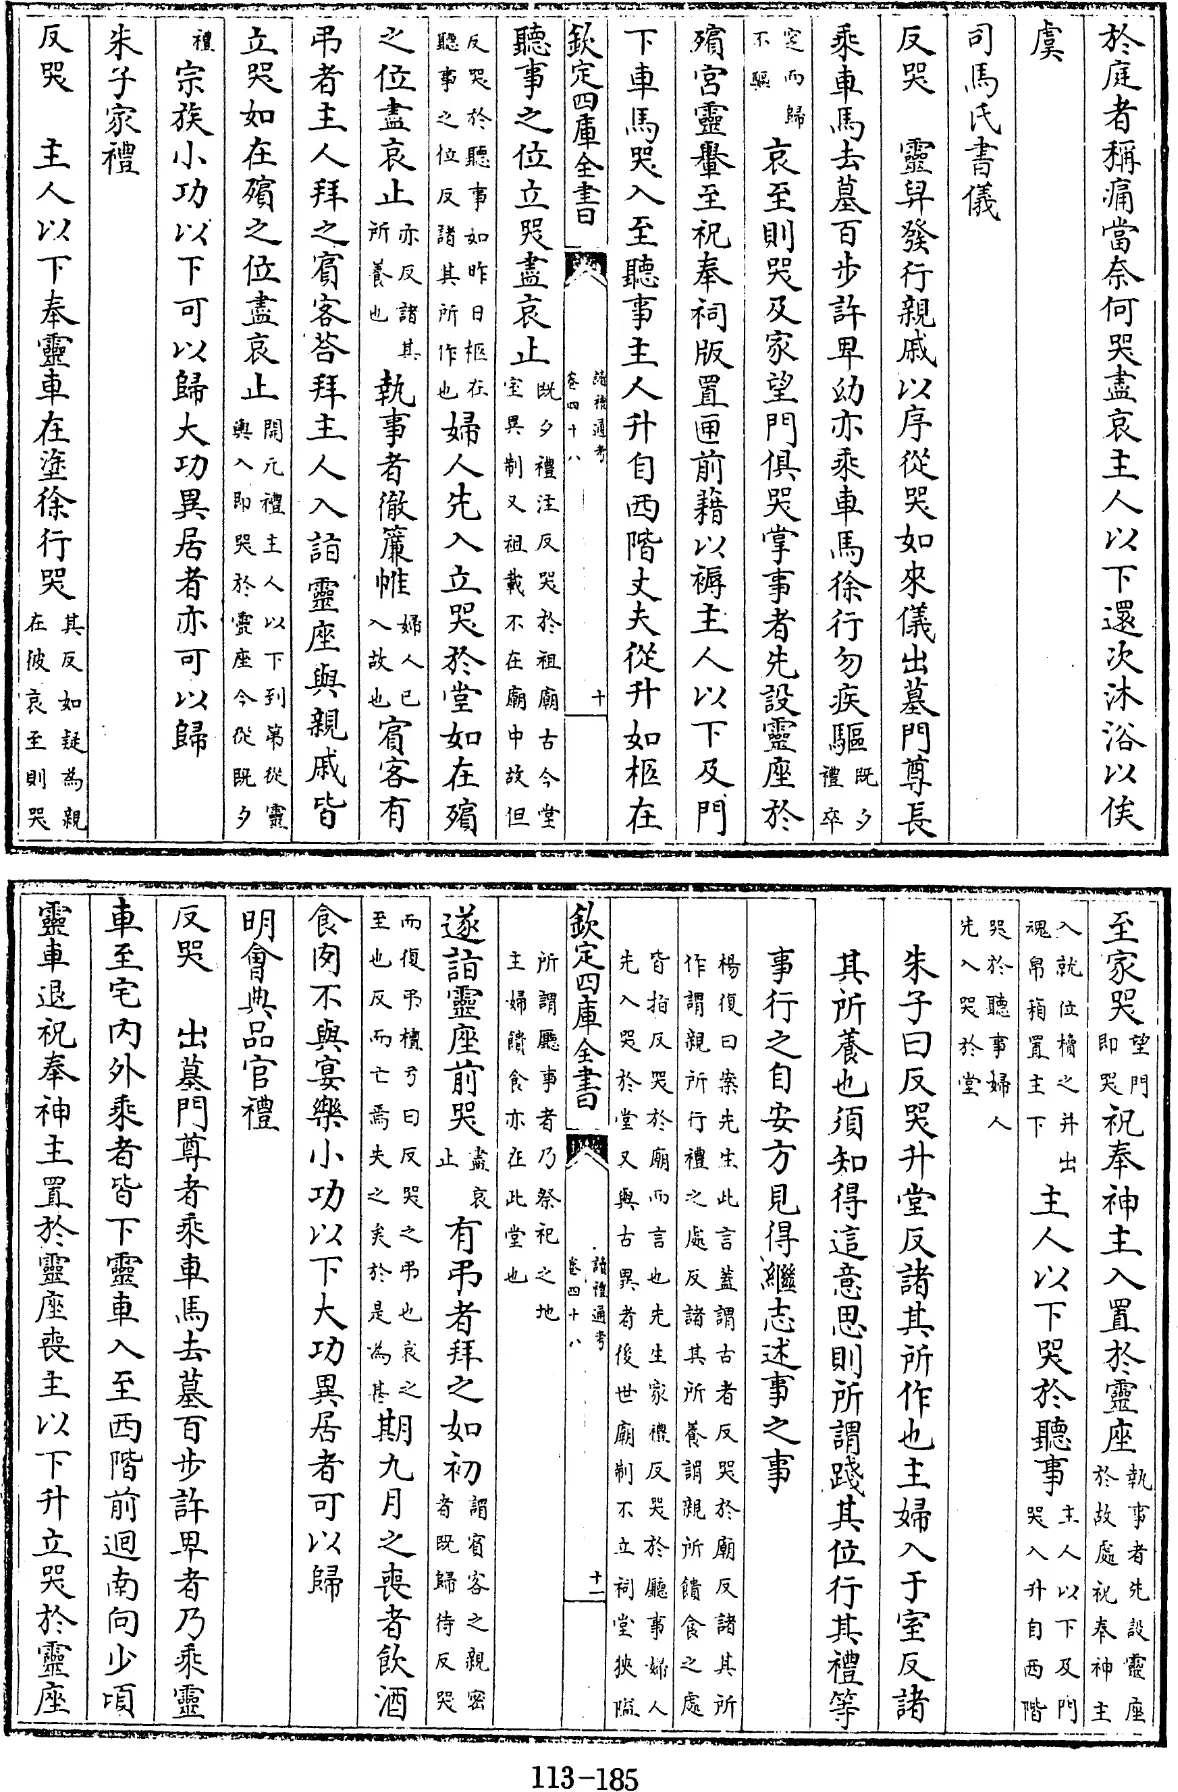 於庭者稱痛當奈何哭盡哀主人以下還次沐浴以俟
虞
司馬氏書儀
反哭　靈轝發行親戚以序從哭如來儀出墓門尊長
乘車馬去墓百步許卑幼亦乘車馬徐行勿疾驅既夕禮卒
窆而歸不驅哀至則哭及家望門俱哭掌事者先設靈座於
殯宮靈轝至祝奉祠版置匣前藉以褥主人以下及門
下車馬哭入至聽事主人升自西階丈夫從升如柩在
欽定四庫全書　讀禮通考卷四十八　十
聽事之位立哭盡哀止既夕禮注反哭於祖廟古今堂室異制又祖載不在廟中故但
反哭於聽事如昨日柩在聽事之位反諸其所作也婦人先入立哭於堂如在殯
之位盡哀止亦反諸其所養也執事者徹簾帷婦人已入故也賓客有
弔者主人拜之賓客荅拜主人入詣靈座與親戚皆
立哭如在殯之位盡哀止開元禮主人以下到第從靈輿入即哭於靈座今從既夕
禮宗族小功以下可以歸大功異居者亦可以歸
朱子家禮
反哭　主人以下奉靈車在塗徐行哭其反如疑為親在彼哀至則哭
至家哭望門即哭祝奉神主入置於靈座執事者先設靈座於故處祝奉神主
入就位櫝之并出魂帛箱置主下主人以下哭於聽事主人以下及門哭入升自西階
哭於聽事婦人先入哭於堂
朱子曰反哭升堂反諸其所作也主婦入于室反諸
其所養也須知得這意思則所謂踐其位行其禮等
事行之自安方見得繼志述事之事
楊復曰案先生此言蓋謂古者反哭於廟反諸其所作謂親所行禮之處反諸其所養謂親所饋食之處
皆指反哭於廟而言也先生家禮反哭於廳事婦人先入哭於堂又與古異者後世廟制不立祠堂狹隘
欽定四庫全書　讀禮通考卷四十八　十一
所謂廳事者乃祭祀之地主婦饋食亦在此堂也
遂詣靈座前哭盡哀止有弔者拜之如初謂賓客之親密者既歸待反哭
而復弔檀弓曰反哭之弔也哀之至也反而亡焉失之矣於是為甚期九月之喪者飲酒
食肉不與宴樂小功以下大功異居者可以歸
明會典品官禮
反哭　出墓門尊者乘車馬去墓百步許卑者乃乘靈
車至宅內外乘者皆下靈車入至西階前迴南向少頃
靈車退祝奉神主置於靈座喪主以下升立哭於靈座
113-185